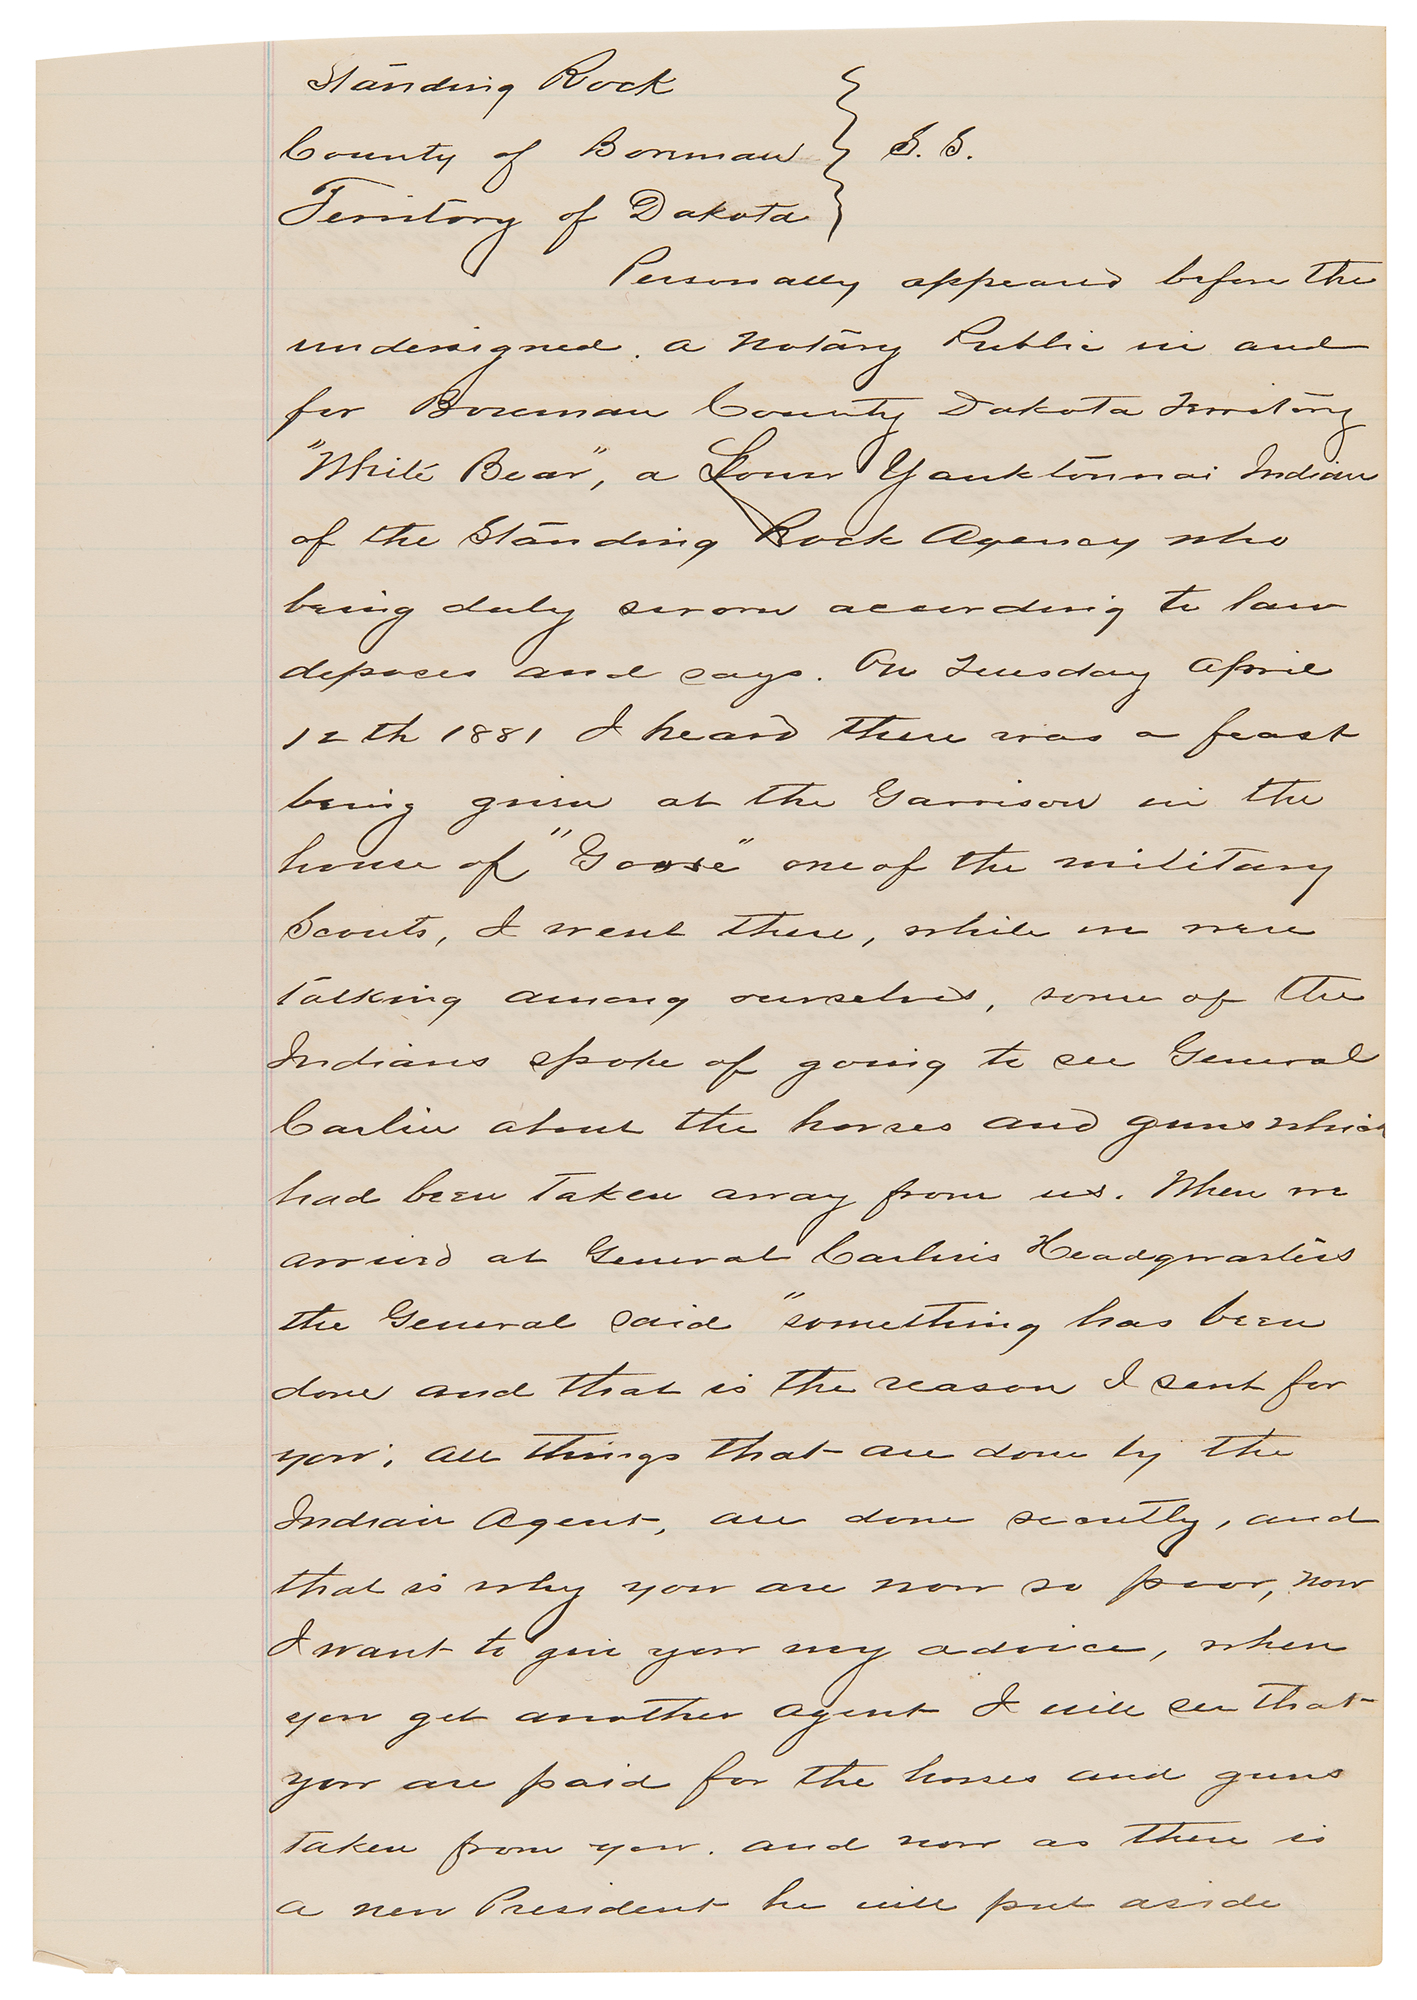 Standing Rock
County of Boreman } S.S.
Territory of Dakota
Personally appeared before the
undersigned. a Notary Public in and
for Boreman County Dakota Territory
"White Bear", a Lower Yanktonnai Indian
of the Standing Rock Agency who
being duly sworn according to law
deposes and says. On Tuesday April
12th 1881 I heard there was a feast
being given at the Garrison in the
house of "Goose" one of the military
Scouts, I went there, while we were
talking among ourselves, some of the
Indians spoke of going to see General
Carlin about the horses and guns which
had been taken away from us. When we
arrived at General Carlins Headquarters
the General said "something has been
done and that is the reason I sent for
you; all things that are done by the
Indian Agent, are done secretly, and
that is why you are now so poor, now
I want to give you my advice, when
you get another agent I will see that
you are paid for the horses and guns
taken from you. and now as there is
a new President he will put aside